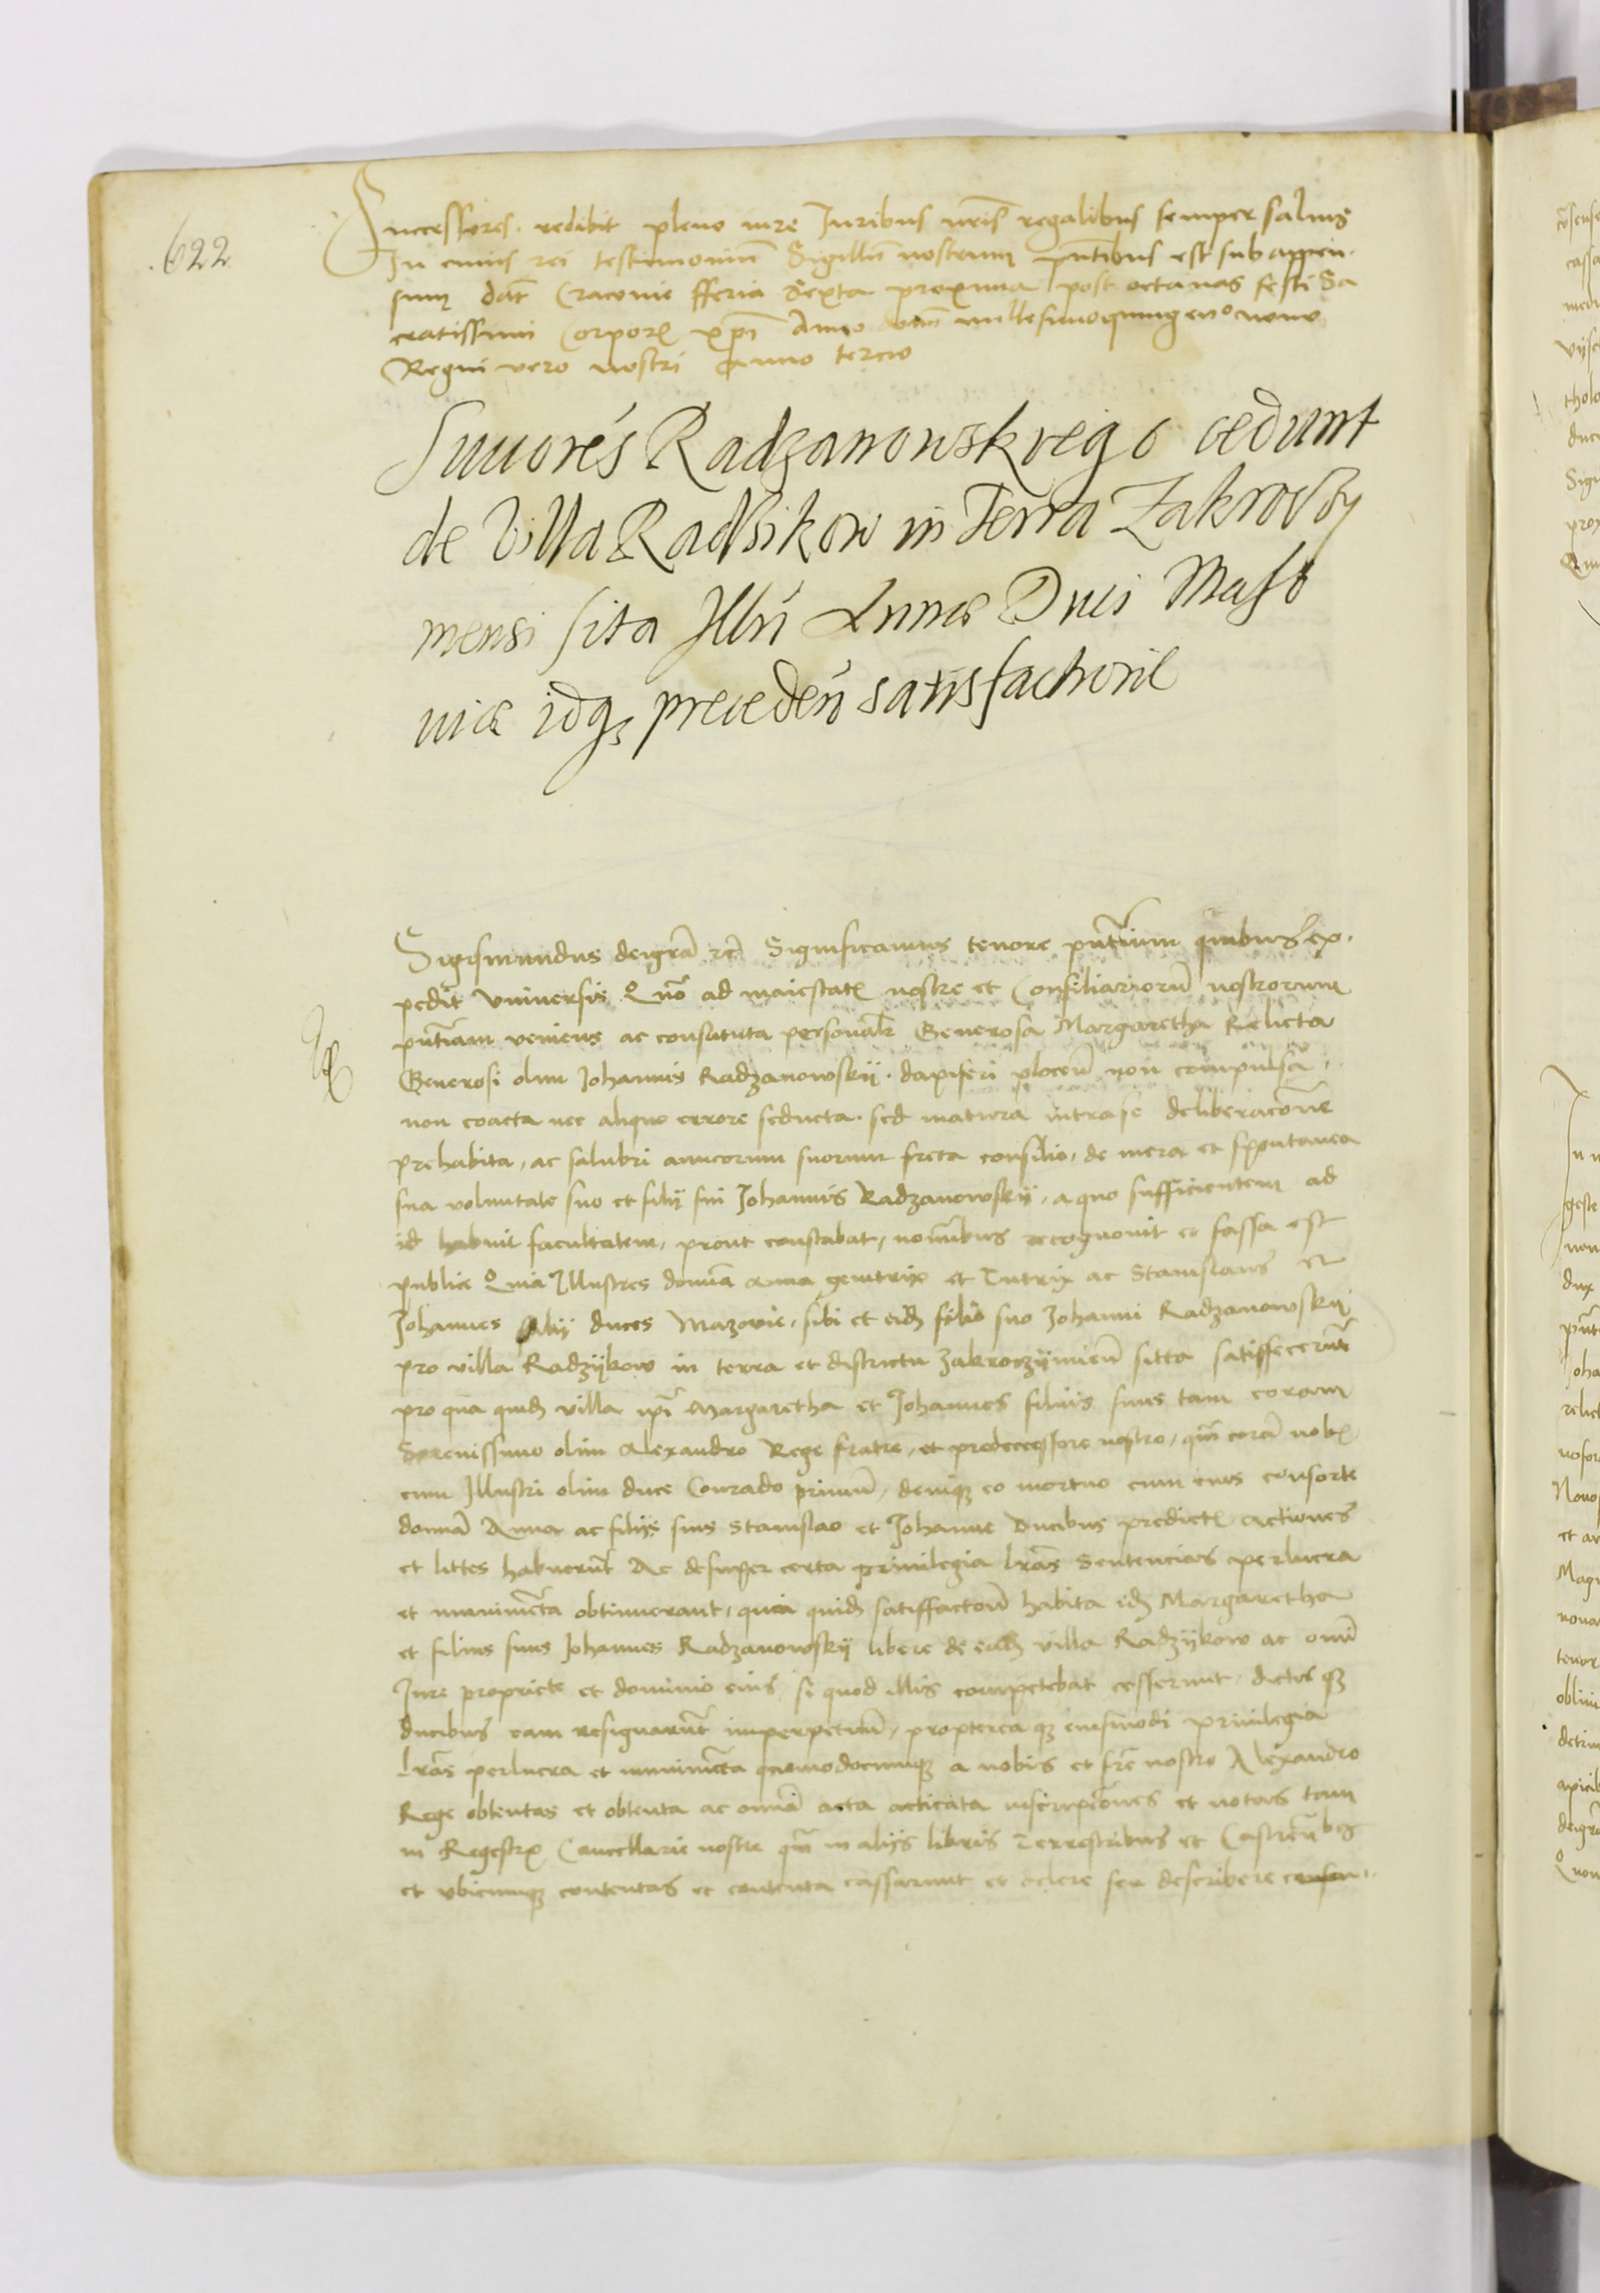 622
Successores. redibit pleno iure Iuribus nris regalibus semper salvis
In cuius rei testimoniu Sigillu nostrum pntibus est subappen.
sum dat Cracovie fferia Sexta proxima post octavas festi Sa
cratissimi Corporis xpi Anno dni millesimoquingen^o nono
Regni vero nostri Anno tercio
Radzanowskiego cedunt
de Villa Radzikow in Terra Zakroczy
mensi sita Illri Annæ Duci Maso
viæ idq precedeñ satisfactione
Sigismundus deigra etc Significamus tenore pntium quibus ex.
pedit Vniversis Quo ad maiestatis nostre et Consiliarioru nostrorum
pntiam veniens ac constituta personalr Generosa Margaretha Relicta
Generosi olim Johannis Radzanowskij. dapiferi plocen non compulsa
non coacta nec aliquo errore seducta. sed matura intra se deliberacone
prehabita, ac salubri amicorum suorum freta consilio, de mera et spontanea
sua voluntate suo et filij sui Johannis Radzanowskij, a quo sufficientem ad
id habuit facultatem, prout constabat, nominibus recognovit et fassa est
publice Quia Illustres domina Anna genitrix et Tutrix ac Stanislaus et
Johannes filij duces Mazovie, sibi et eid filio suo Johanni Radzanowskij
pro villa Radzijkow in terra et districtu Zakroczijmien sitta satisfecerunt
pro qua quid villa ipi Margaretha et Johannes filius suus tam coram
Serenissimo olim Alexandro Rege fratre, et predecessore nostro, qm cora nobis
cum Illustri olim duce Conrado primu, deniq eo mortuo cum eius consorte
domna Anna ac filijs suis Stanislao et Johanne Ducibus predictis actiones
et littes habuerut Ac desuper certa privilegia lras Sentencias perlucra
et munimeta obtinuerant, quia quid satisffactione habita eid Margaretha
et filius suus Johannes Radzanowskij libere de ead villa Radzijkow ac omi
Iure proprietate et dominio eius si quod illis competebat cesserunt, dictis q
ducibus eam resignarut imperpetuu, propterea q eiusmodi privilegia
lras perlucra et munimeta quomodocunq a nobis et fre nostro Alexandro
Rege obtentas et obtenta ac omia acta acticata inscripciones et notas tam
in Regestris Cancellarie nostre qm in alijs libris Terrestribus et Castren
et ubicunq contentas et contenta cassarunt et delere seu describere